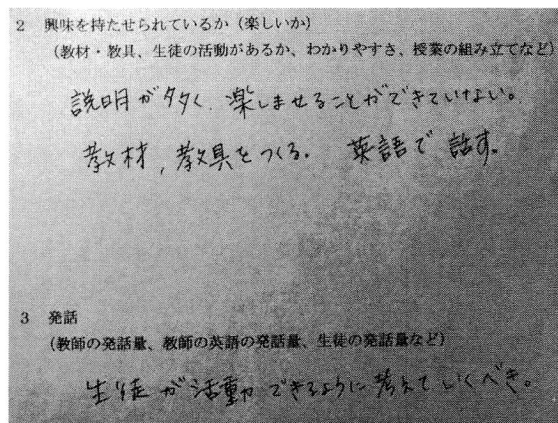 2 興味を持たせられているか（楽しいか）
（教材・教具、生徒の活動があるか、わかりやすさ、授業の組み立てなど）
説明が多く、楽しませることができていない。
教材，教具をつくる。 英語で話す。
3 発話
（教師の発話量、教師の英語の発話量、生徒の発話量など）
生徒が活動できるように考えていくべき。